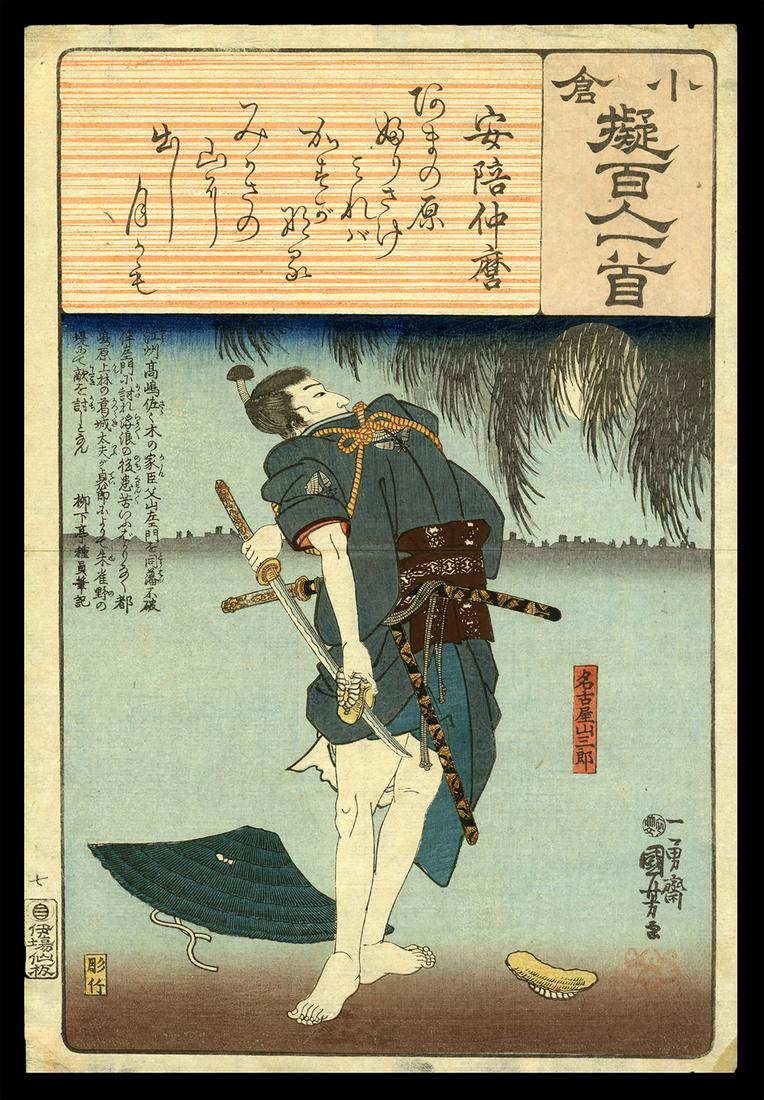 小倉
擬百人一首
安陪仲麿
阿まの原
婦りさけ
三れバ
加春が
なる
みかさの
山に
出し
月かも
江州高嶋佐々木の家臣父山左エ門を同藩不破
伴左エ門に討れ浮浪の後患苦いふばかりなく都
嶋原上林の葛城太夫が貞節によりて朱雀野の
堤にて敵を討しとなん
柳下亭種員筆記
名古屋山三郎
一勇齋
國芳画
七
伊場仙板
彫竹